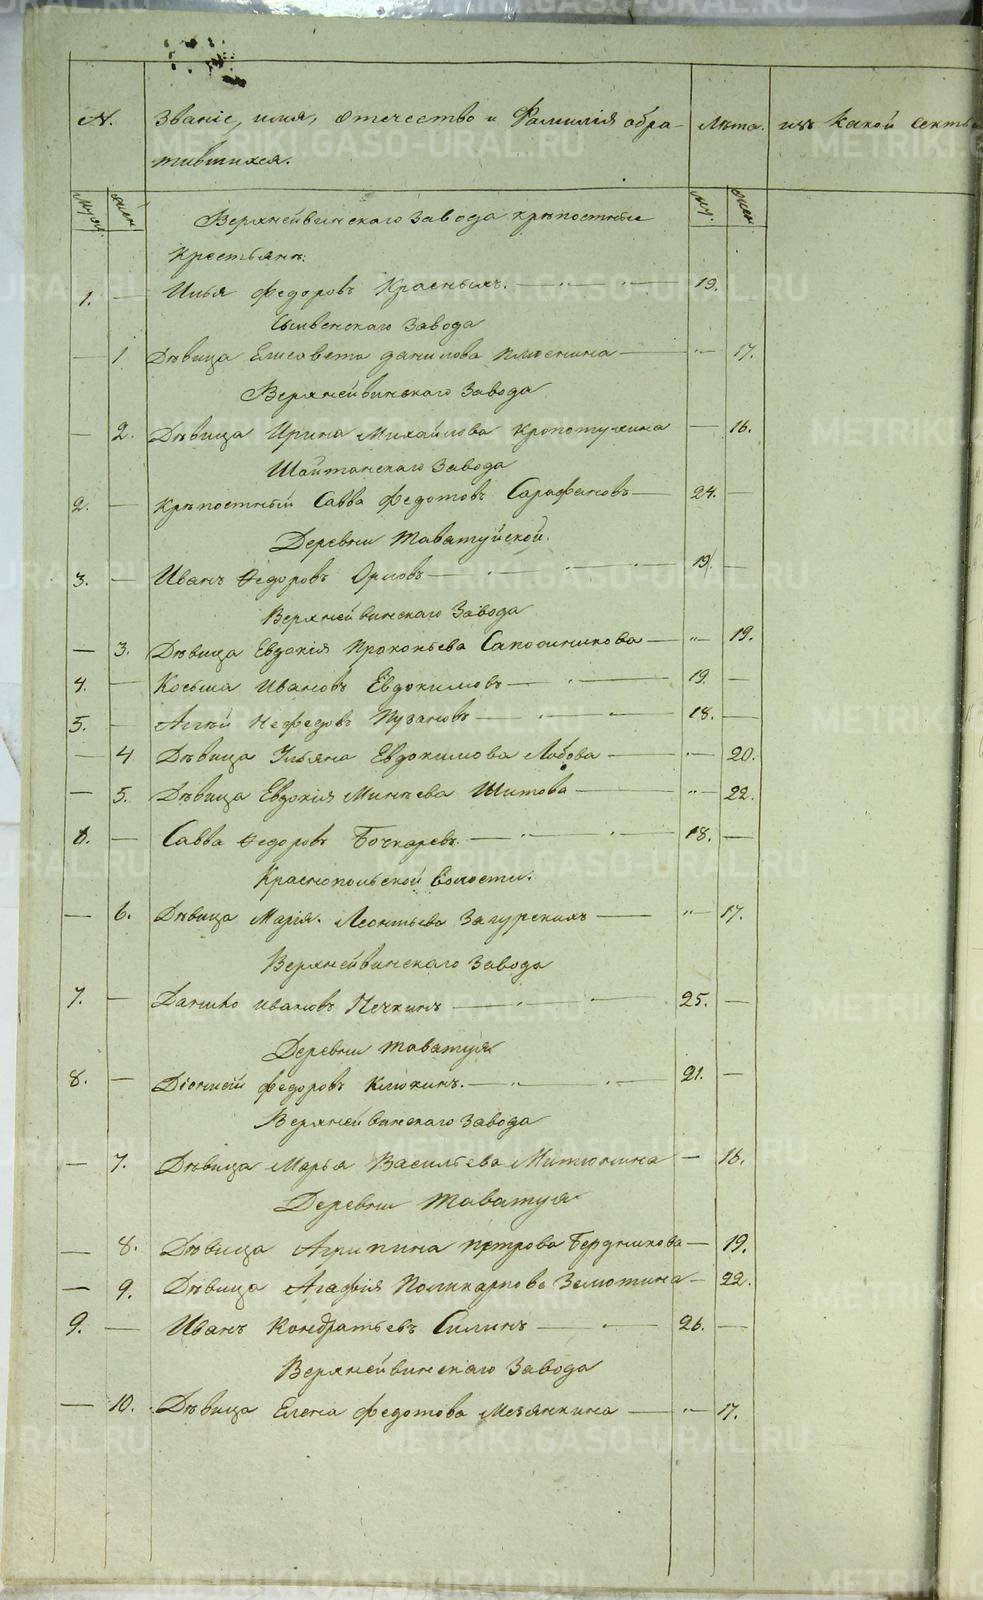 METRIKI.GASO-URAL.RU
№. Званіе, имя, отечество и Фамилія обра- Лѣта. изъ какой секты
тившихся.
муж. жен. муж. жен.
Верхнейвинскаго Завода крѣпостные
Крестьяне.
1. — Илья Федоровъ Красныхъ. — 19.
Сылвенскаго Завода
— 1 Дѣвица Елисавета Данилова Плюснина — " — 17.
Верхнейвинскаго Завода
— 2. Дѣвица Ирина Михайлова Кропотухина — 16.
Шайтанскаго Завода
2. — крѣпостный Савва Федотовъ Сарафановъ — 24. —
Деревни Таватуйской.
3. — Иванъ Ѳедоровъ Орловъ — 19. —
Верхнейвинскаго Завода
— 3. Дѣвица Евдокія Прокопьева Сапожникова — " — 19.
4. — Косьма Ивановъ Евдокимовъ — 19. —
5. — Аггѣй Нефедовъ Пузановъ — 18. —
— 4 Дѣвица Ульяна Евдокимова Лобова — " — 20.
— 5. Дѣвица Евдокія Минѣева Шитова — " — 22.
6. — Савва Ѳедоровъ Бочкаревъ. — 18. —
Краснопольской волости.
— 6. Дѣвица Марія Леонтьева Загурскихъ — " — 17.
Верхнейвинскаго Завода
7. — Данило Ивановъ Печкинъ — 25. —
Деревни Таватуя
8. — Діонисій Федоровъ Клюкинъ. — 21. —
Верхнейвинскаго Завода
— 7. Дѣвица Марья Васильева Митюнина — 16.
Деревни Таватуя
— 8. Дѣвица Агрипина Петрова Бердникова — 19.
— 9. Дѣвица Агафія Поликарпова Замотина — 22.
9. — Иванъ Кондратьевъ Силинъ — 26. —
Верхнейвинскаго Завода
— 10. Дѣвица Елена Федотова Мезянкина — " — 17.